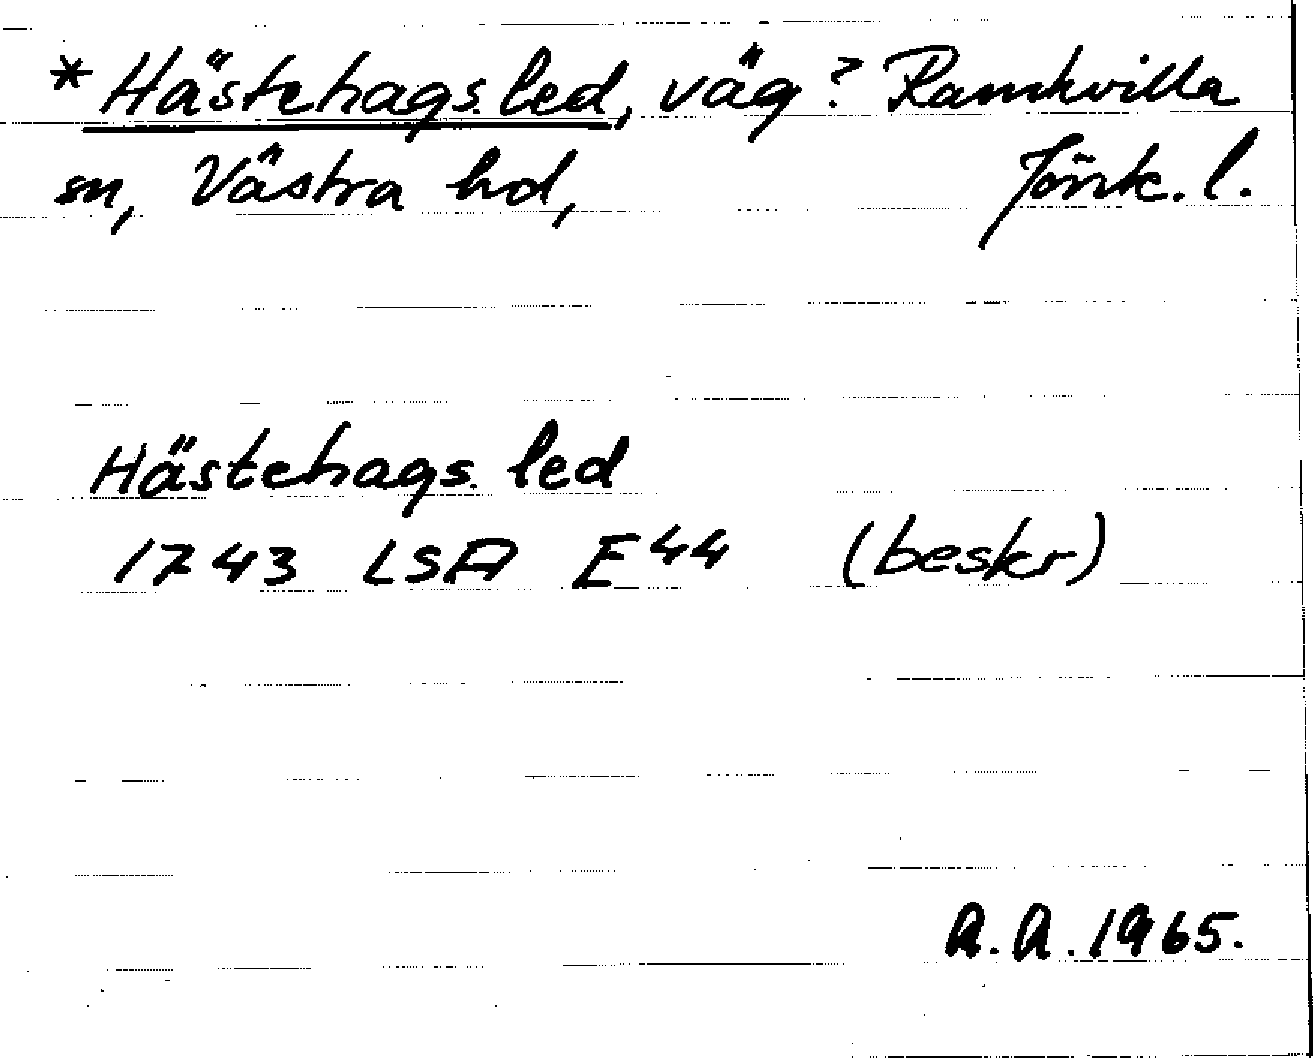 *Hästehags led, väg? Ramkvilla
sn, Västra hd, Jönk. l.
Hästehags led
1743 LSA E44 (beskr)
A.A. 1965.